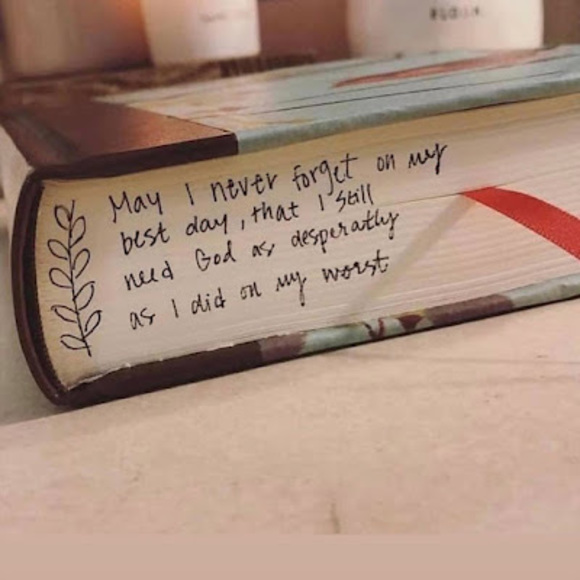 May I never forget on my
best day, that I still
need God as desperatly
as I did on my worst